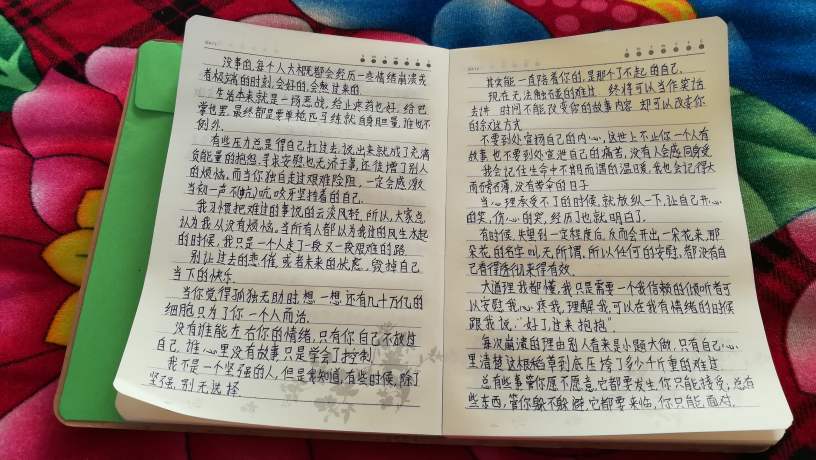 没事的,每个人大概都会经历一些情绪崩溃或
者极端的时刻,会好的,会熬过来的.
生活本来就是一场恶战,给止疼药也好,给巴
掌也罢,最终都要单枪匹马练就自身胆量,谁也不
例外.
有些压力总是得自己扛过去,说出来就成了充满
负能量的抱怨.寻求安慰也无济于事,还徒增了别人
的烦恼.而当你独自走过艰难险阻,一定会感激
当初一声不(吭)吭,咬牙坚持着的自己.
我习惯把难过的事说的云淡风轻.所以,大家总
认为我从没有烦恼.当所有人都以为我过的风生水起
的时候,我只是一个人走了一段又一段艰难的路.
别让过去的悲催,或者未来的忧虑,毁掉自己
当下的快乐.
当你觉得孤独无助时,想一想还有几十万亿的
细胞只为了你一个人而活.
没有谁能左右你的情绪,只有你自己不放过
自己.谁心里没有故事只是学会了控制.
我不是一个坚强的人,但是我知道,有些时候,除了
坚强,别无选择.
其实能一直陪着你的,是那个了不起的自己.
现在无法触而碰的难过 终得可以当作笑话
去讲 时间不能改变你的故事内容 却可以改变你
的叙述方式
不要到处宣扬自己的内心,这世上不止你一个人有
故事.也不要到处宣泄自己的痛苦,没有人会感同身受
我会记住生命中不期而遇的温暖,我也会记得大
雨滂沱,没有带伞的日子
当心理承受不了的时候,就放纵一下,让自己开心
的笑,伤心的哭,经历了也就明白了.
有时候,失望到一定程度后,反而会开出一朵花来,那
朵花的名字叫无所谓.所以任何的安慰,都没有自
己看得透彻来得有效.
大道理我都懂,我只是需要一个我信赖的倾听者可
以安慰我,心疼我,理解我,可以在我有情绪的时候
跟我说:“好了,过来抱抱”.
每次崩溃的理由别人看来是小题大做,只有自己心
里清楚这根稻草到底压垮了多少千斤重的难过
总有些事,管你愿不愿意,它都要发生,你只能接受,总有
些东西,管你躲不躲避,它都要来临,你只能面对.